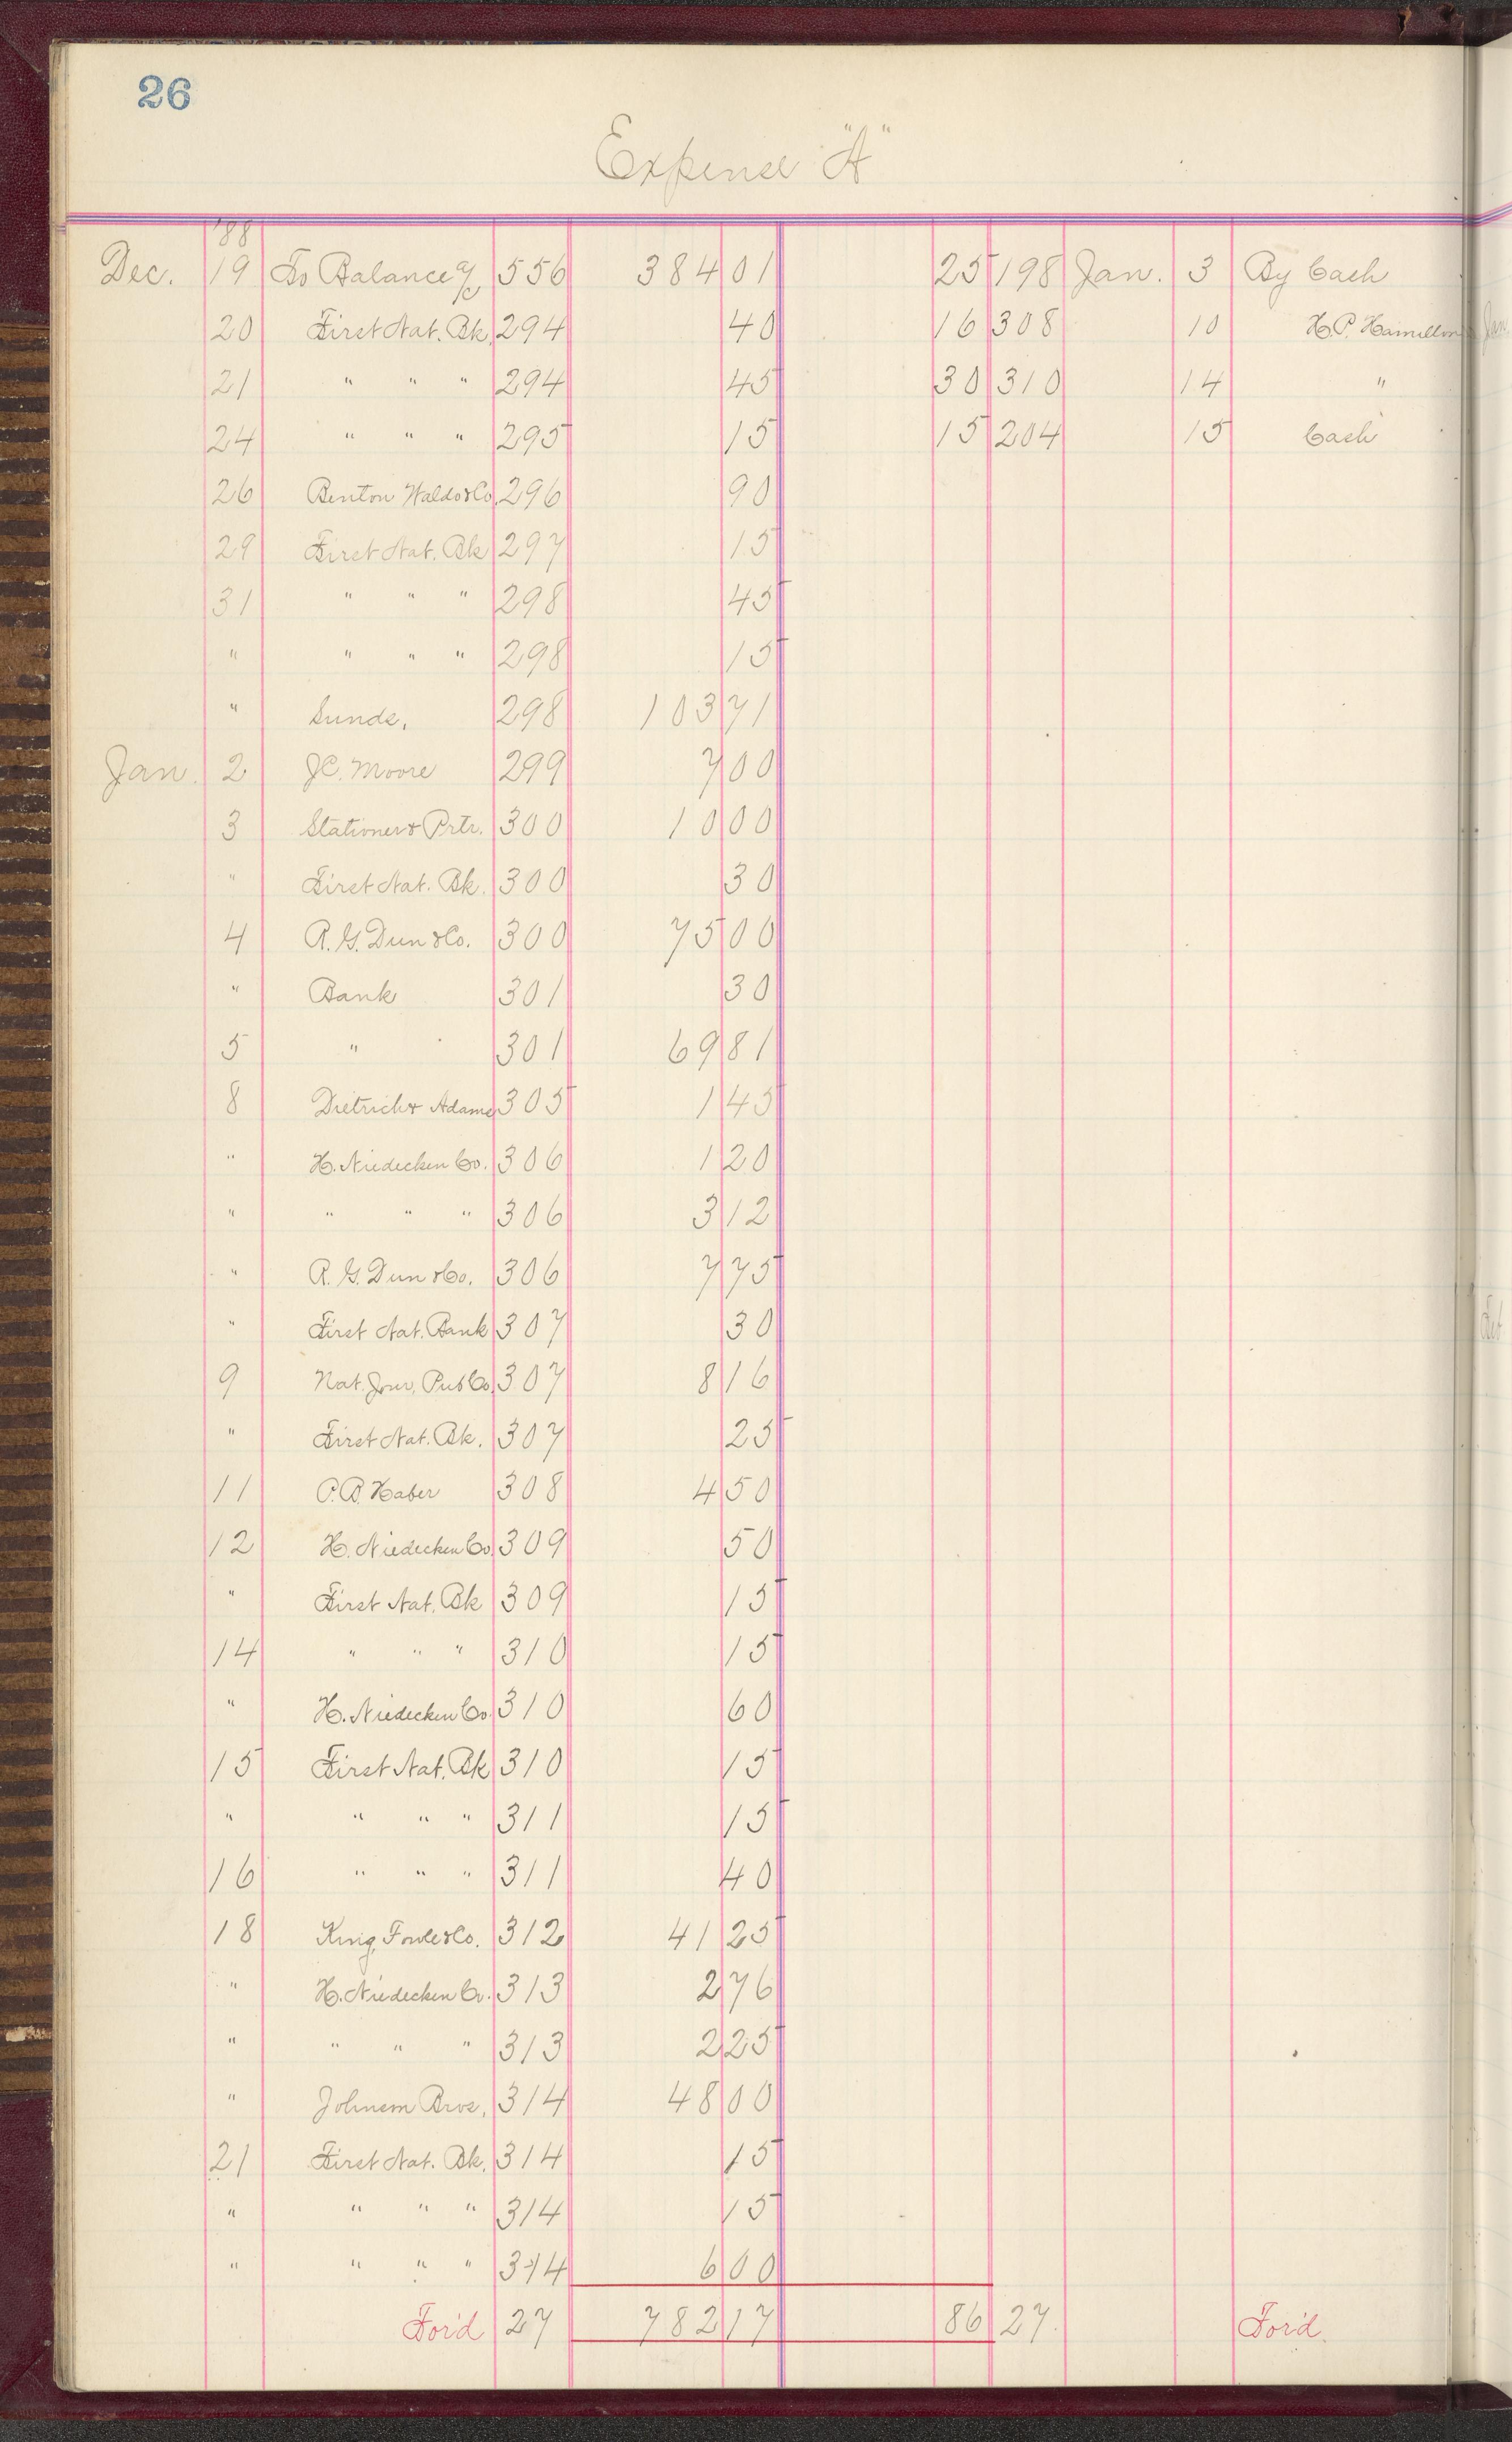 26
Expense "A"
'88
Dec. 19 To Balance a/c 556 384 01 25 198 Jan. 3 By Cash
20 First Nat. Bk. 294 40 16 308 10 H.P. Hamilton
21 " " " 294 45 30 310 14 "
24 " " " 295 15 15 204 15 Cash
26 Benton Waldo & Co. 296 90
29 First Nat. Bk 297 15
31 " " " 298 45
" " " " 298 15
" Sunds. 298 103 71
Jan. 2 J.C. Moore 299 7 00
3 Stationer & Prtr. 300 10 00
" First Nat. Bk. 300 30
4 R.G. Dun & Co. 300 75 00
" Bank 301 30
5 " 301 69 81
8 Dietrich & Adams 305 1 45
" H. Niedecken Co. 306 1 20
" " " " 306 3 12
" R.G. Dun & Co. 306 7 75
" First Nat. Bank 307 30
9 Nat. Jour. Pub Co. 307 8 16
" First Nat. Bk. 307 25
11 P.B. Haber 308 4 50
12 H. Niedecken Co. 309 50
" First Nat. Bk 309 15
14 " " " 310 15
" H. Niedecken Co. 310 60
15 First Nat. Bk 310 15
" " " " 311 15
16 " " " 311 40
18 King, Fowle & Co. 312 41 25
" H. Niedecken Co. 313 2 76
" " " " 313 2 25
" Johnson Bros. 314 48 00
21 First Nat. Bk. 314 15
" " " " 314 15
" " " " 314 6 00
For'd 27 782 17 86 27. For'd.